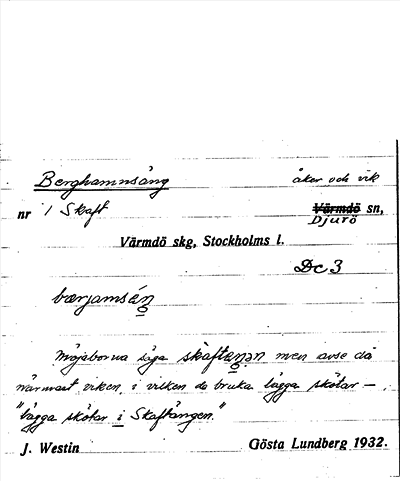 Berghamnsäng åker och vik
nr 1 Skaft Värmdö sn,
Djurö
Värmdö skg, Stockholms l.
Dc 3
bærjamséŋ
Möjaborna säga skàftæŋən men avse då
närmast viken, i vilken de bruka lägga skötar –
"lägga skötar i Skaftängen."
J. Westin Gösta Lundberg 1932.